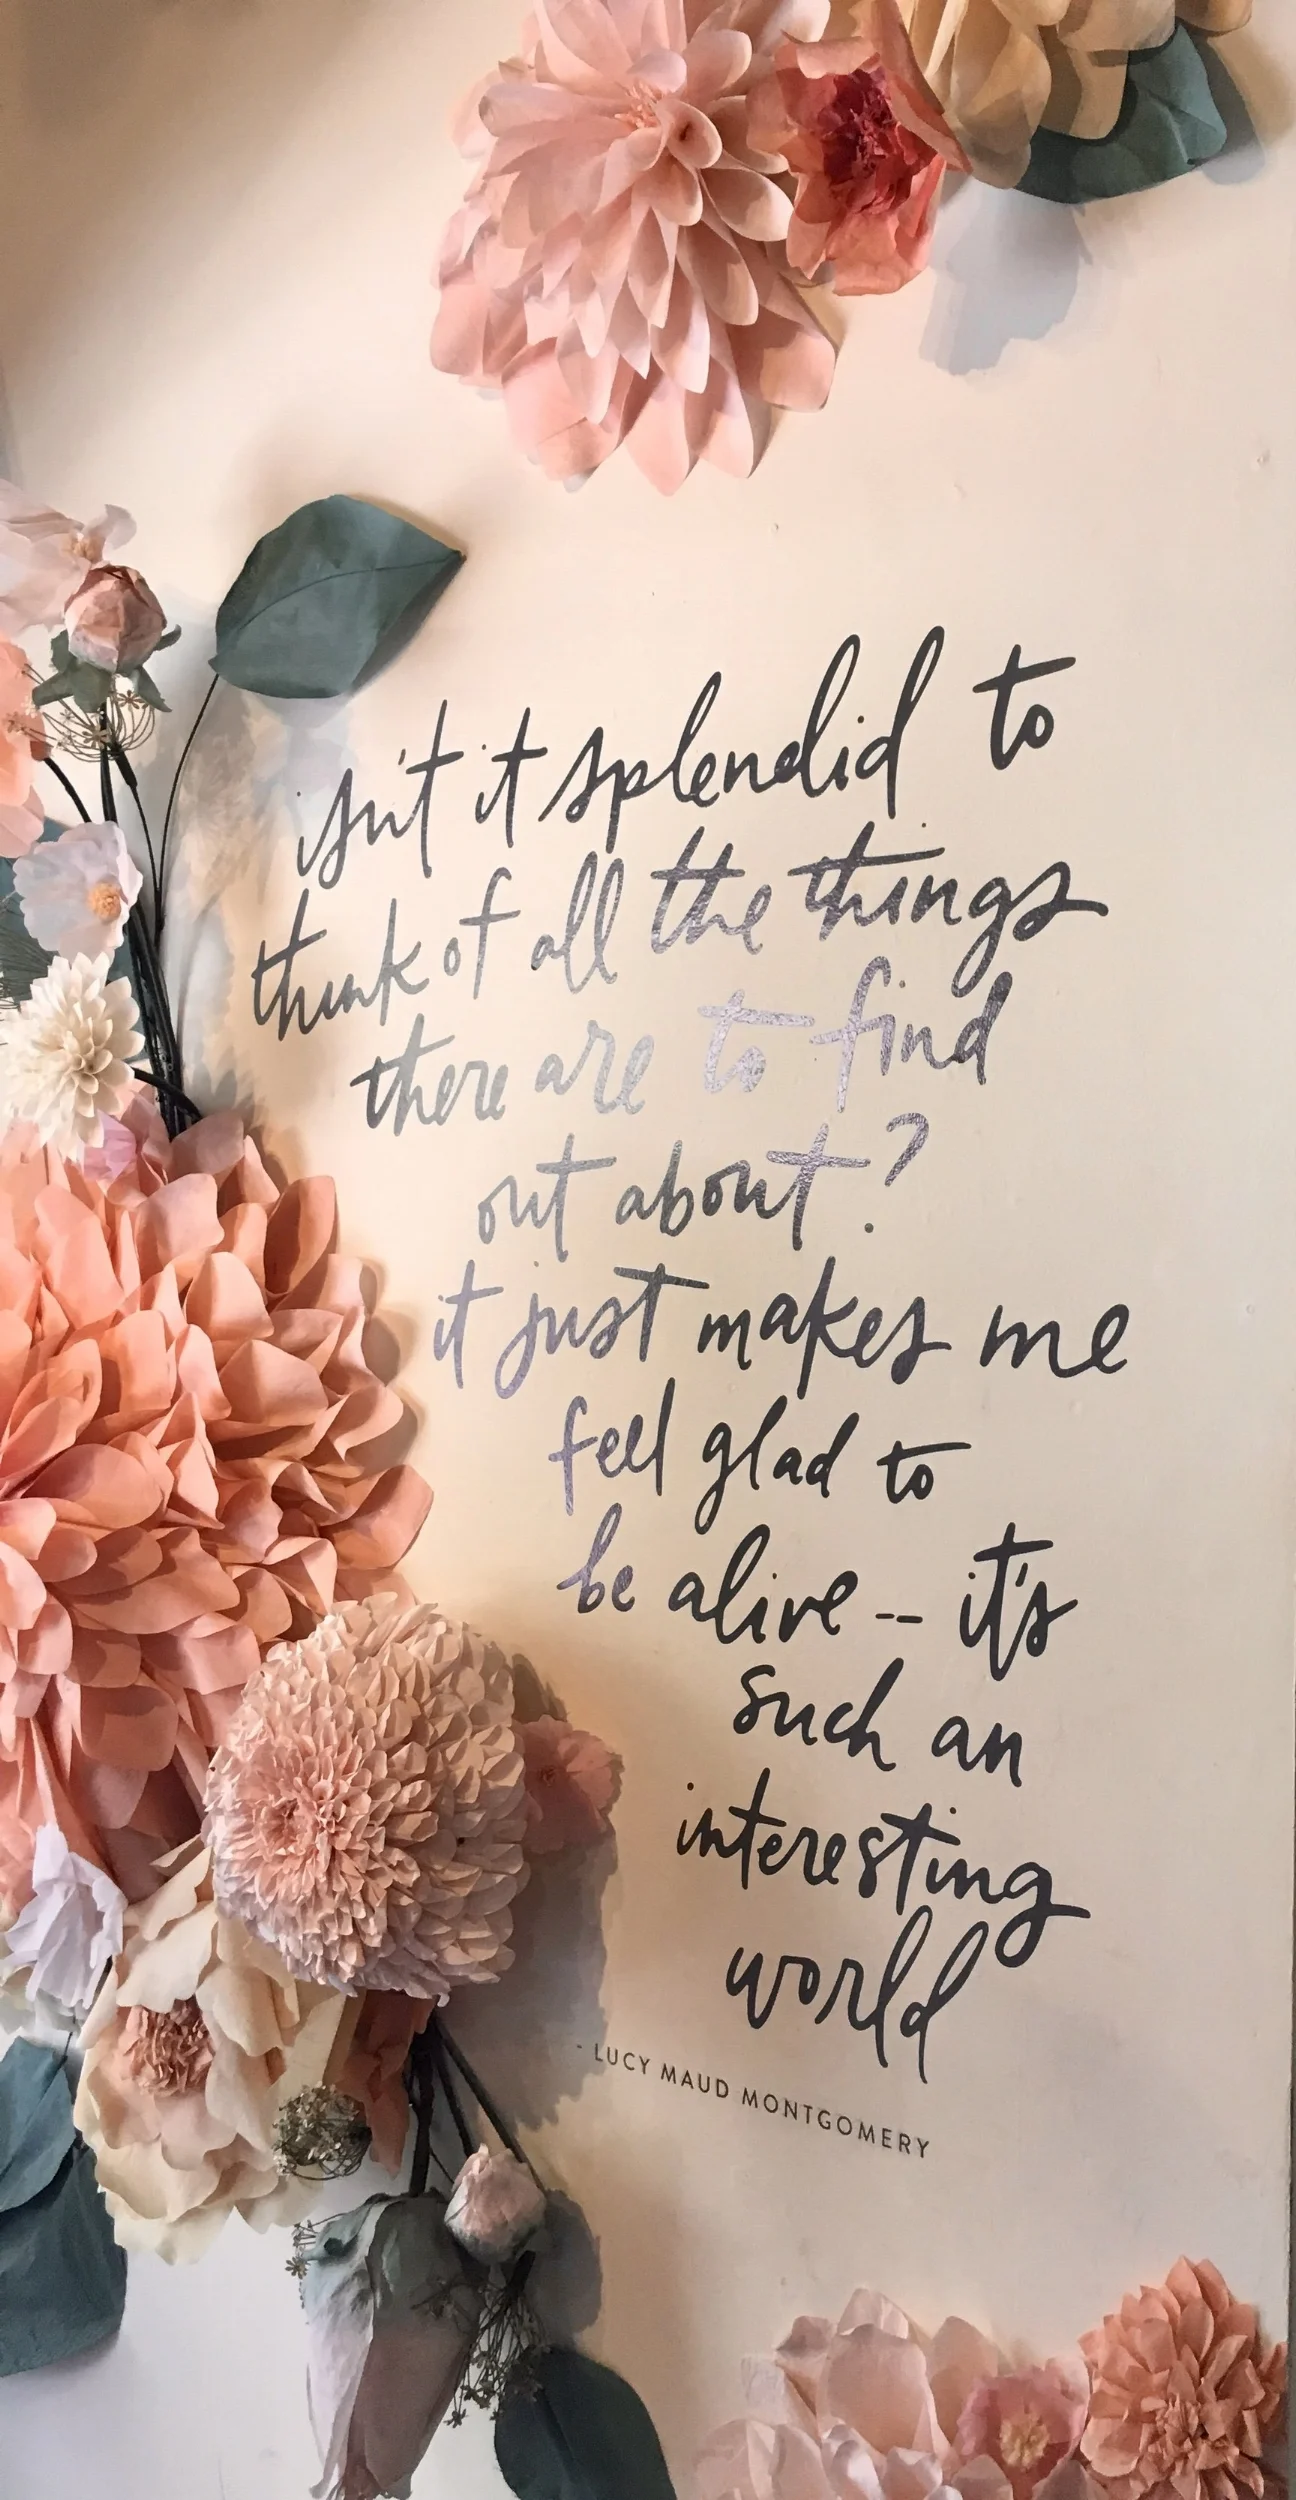 isn't it splendid to
think of all the things
there are to find
out about?
it just makes me
feel glad to
be alive -- it's
such an
interesting
world
- LUCY MAUD MONTGOMERY